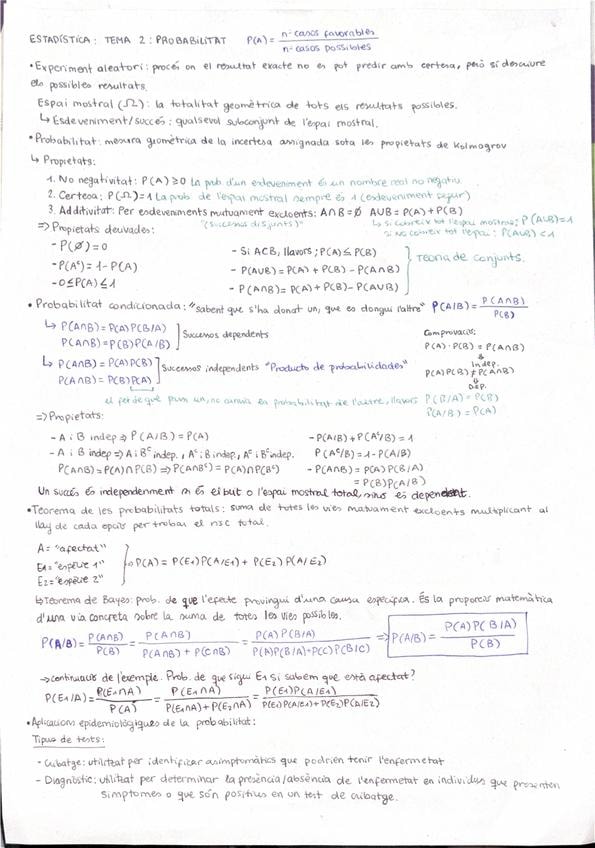 ESTADÍSTICA: TEMA 2: PROBABILITAT P(A) = nº casos favorables / nº casos possibles
• Experiment aleatori: procés on el resultat exacte no es pot predir amb certesa, però sí descriure
els possibles resultats.
Espai mostral (Ω): la totalitat geomètrica de tots els resultats possibles.
↳ Esdeveniment/succés: qualsevol subconjunt de l'espai mostral.
• Probabilitat: mesura geomètrica de la incertesa assignada sota les propietats de Kolmogrov
↳ Propietats:
1. No negativitat: P(A) ≥ 0 La prob d'un esdeveniment és un nombre real no negatiu
2. Certesa: P(Ω) = 1 La prob. de l'espai mostral sempre és 1 (esdeveniment segur)
3. Additivitat: Per esdeveniments mutuament excloents: A∩B = Ø AUB = P(A) + P(B)
"(successos disjunts)" ↳ si cobreix tot l'espai mostral: P(AUB) = 1
si no cobreix tot l'espai: P(AUB) < 1
⇒ Propietats derivades:
- P(Ø) = 0
- P(Aᶜ) = 1 - P(A)
- 0 ≤ P(A) ≤ 1
- Si ACB, llavors; P(A) ≤ P(B)
- P(AUB) = P(A) + P(B) - P(A∩B)
- P(A∩B) = P(A) + P(B) - P(AUB)
Teoria de conjunts.
• Probabilitat condicionada: "sabent que s'ha donat un, que es dongui l'altre" P(A/B) = P(A∩B) / P(B)
↳ P(A∩B) = P(A) P(B/A)
P(A∩B) = P(B) P(A/B)
Successos dependents
↳ P(A∩B) = P(A) P(B)
P(A∩B) = P(B) P(A)
Successos independents "Producto de probabilidades"
Comprovació:
P(A) · P(B) = P(A∩B)
⇓
Indep.
P(A) P(B) ≠ P(A∩B)
⇓
Dep.
el fet de què passi un, no canvia la probabilitat de l'altre, llavors P(B/A) = P(B)
P(A/B) = P(A)
⇒ Propietats:
- A i B indep ⇒ P(A/B) = P(A)
- A i B indep ⇒ A i Bᶜ indep., Aᶜ i B indep., Aᶜ i Bᶜ indep.
P(A∩B) = P(A) ∩ P(B) ⇒ P(A∩Bᶜ) = P(A) ∩ P(Bᶜ)
- P(A/B) + P(Aᶜ/B) = 1
P(Aᶜ/B) = 1 - P(A/B)
- P(A∩B) = P(A) P(B/A)
= P(B) P(A/B)
Un succés és independenment si és el buit o l'espai mostral total, sinus és dependent.
• Teorema de les probabilitats totals: suma de totes les vies mutuament excloents multiplicant al
llarg de cada opció per trobar el risc total.
A = "afectat"
E1 = "espècie 1"
E2 = "espècie 2"
P(A) = P(E1) P(A/E1) + P(E2) P(A/E2)
↳ Teorema de Bayes: prob. de que l'efecte provingui d'una causa específica. És la proporció matemàtica
d'una via concreta sobre la suma de totes les vies possibles.
P(A/B) = P(A∩B) / P(B) = P(A∩B) / P(A∩B) + P(C∩B) = P(A) P(B/A) / P(A)P(B/A) + P(C) P(B/C) ⇒ P(A/B) = P(A) P(B/A) / P(B)
→ continuació de l'exemple. Prob. de que sigui E1 si sabem que està afectat?
P(E1/A) = P(E1∩A) / P(A) = P(E1∩A) / P(E1∩A) + P(E2∩A) = P(E1) P(A/E1) / P(E1) P(A/E1) + P(E2) P(A/E2)
• Aplicacions epidemiològiques de la probabilitat:
Tipus de tests:
- Cribatge: utilitzat per identificar asimptomàtics que podrien tenir l'enfermetat
- Diagnòstic: utilitzat per determinar la presència/absència de l'enfermetat en individus que presenten
símptomes o que són positius en un test de cribatge.